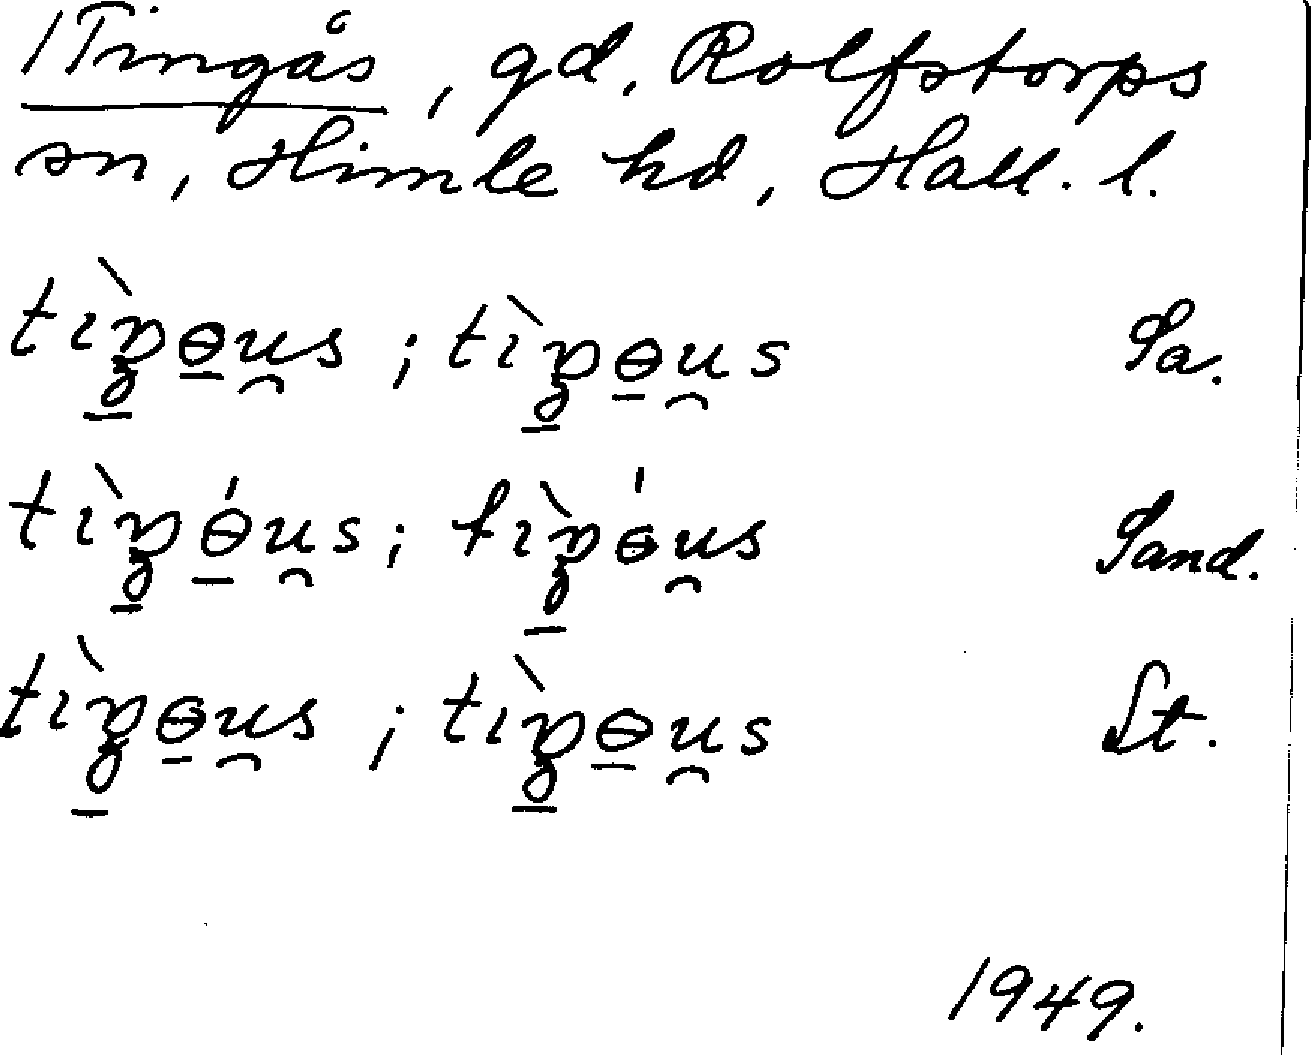 /Tingås, gd, Rolfstorps
sn, Himle hd, Hall. l.
tìŋ̱ɵ̱u̯s ; tìŋ̱ɵ̱u̯s Sa.
tìŋ̱ɵ̱́u̯s ; tìŋ̱ɵ́u̯s Sand.
tìŋ̱ɵ̱u̯s ; tìŋ̱ɵ̱u̯s St.
1949.